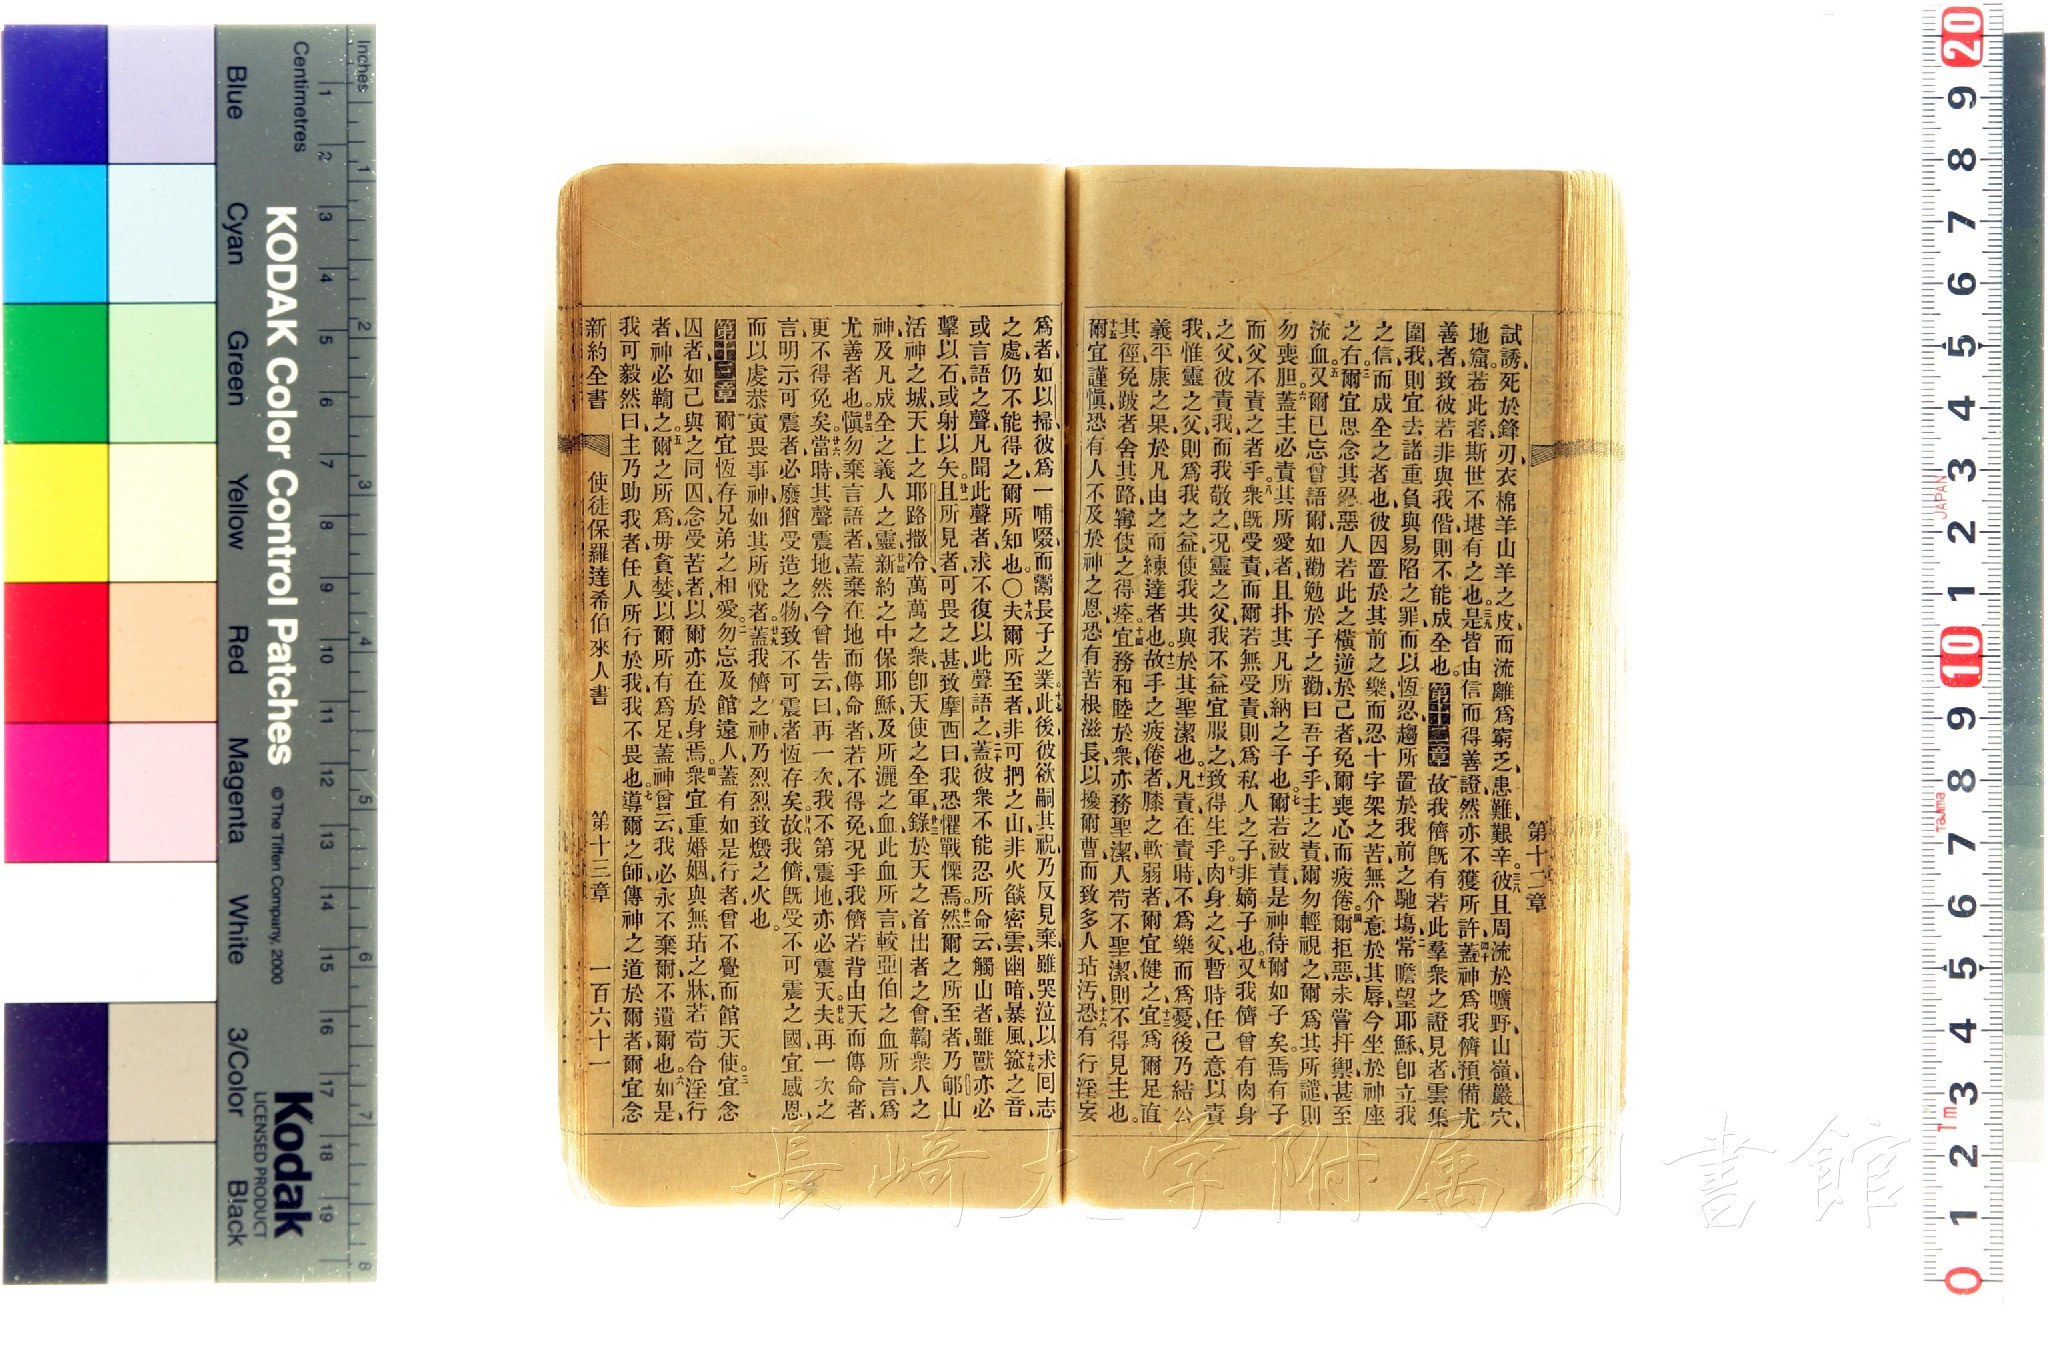 試誘、死於鋒刃、衣棉羊山羊之皮、而流離爲窮乏、患難艱辛、彼且周流於曠野山嶺巖穴、
地窟、若此者斯世不堪有之也。三九是皆由信而得善證、然亦不獲所許、四十蓋神爲我儕預備尤
善者、致彼若非與我偕、則不能成全也。第十二章 一故我儕旣有若此羣衆之證見者雲集
圍我、則宜去諸重負與易陷之罪、而以恆忍趨所置於我前之馳塲、二常瞻望耶穌、卽立我
之信而成全之者也、彼因置於其前之樂、而忍十字架之苦、無介意於其辱、今坐於神座
之右。三爾宜思念其忍惡人若此之橫逆於己者、免爾喪心而疲倦。四爾拒惡未嘗扞禦甚至
流血。五又爾已忘曾語爾如勸勉於子之勸曰、吾子乎、主之責爾勿輕視之、爾爲其所譴、則
勿喪胆。六蓋主必責其所愛者、且扑其凡所納之子也。七爾若被責、是神待爾如子矣、焉有子
而父不責之者乎。八衆旣受責、而爾若無受責、則爲私人之子、非嫡子也。九又我儕曾有肉身
之父、彼責我、而我敬之、况靈之父、我不益宜服之、致得生乎。十肉身之父、暫時任己意以責
我、惟靈之父、則爲我之益、使我共與於其聖潔也。十一凡責在責時不爲樂而爲憂、後乃結公
義平康之果、於凡由之而練達者也。十二故手之疲倦者、膝之軟弱者、爾宜健之、十三宜爲爾足直
其徑、免跛者舍其路、寧使之得痊。十四宜務和睦於衆、亦務聖潔、人苟不聖潔、則不得見主也。
十五爾宜謹愼、恐有人不及於神之恩、恐有苦根滋長、以擾爾曹、而致多人玷汚、十六恐有行淫妄
第十二章
爲者、如以掃彼爲一哺啜而鬻長子之業。十七此後彼欲嗣其祝、乃反見棄、雖哭泣以求囘志
之處、仍不能得之、爾所知也。〇十八夫爾所至者、非可捫之山、非火燄密雲、幽暗暴風、十九箛之音、
或言語之聲、凡聞此聲者、求不復以此聲語之、二十蓋彼衆不能忍所命云、觸山者雖獸亦必
擊以石、或射以矢。廿一且所見者、可畏之甚、致摩西曰、我恐懼戰慄焉。廿二然爾之所至者、乃郇山、
活神之城、天上之耶路撒冷、萬萬之衆、卽天使之全軍、廿三錄於天之首出者之會、鞫衆人之
神、及凡成全之義人之靈、廿四新約之中保耶穌、及所灑之血、此血所言較亞伯之血所言爲
尤善者也。廿五愼勿棄言語者、蓋棄在地而傳命者、若不得免、况乎我儕若背由天而傳命者、
更不得免矣。廿六當時其聲震地、然今曾告云、曰再一次我不第震地、亦必震天。廿七夫再一次之
言、明示可震者必廢、猶受造之物、致不可震者恆存矣。廿八故我儕旣受不可震之國、宜感恩、
而以虔恭寅畏事神、如其所悅者、廿九蓋我儕之神、乃烈烈致燬之火也。
第十三章 一爾宜恆存兄弟之相愛。二勿忘及館遠人、蓋有如是行者、曾不覺而館天使。三宜念
囚者、如己與之同囚、念受苦者、以爾亦在於身焉。四衆宜重婚姻、與無玷之牀、若苟合淫行
者、神必鞫之。五爾之所爲毋貪婪、以爾所有爲足、蓋神曾云、我必永不棄爾、不遺爾也。六如是
我可毅然曰、主乃助我者、任人所行於我、我不畏也。七導爾之師、傳神之道於爾者、爾宜念
新約全書 使徒保羅達希伯來人書 第十三章 一百六十一
Inches
Centimetres
KODAK Color Control Patches
© The Tiffen Company, 2000
Kodak
LICENSED PRODUCT
Blue Cyan Green Yellow Red Magenta White 3/Color Black
1 2 3 4 5 6 7 8 9 10 11 12 13 14 15 16 17 18 19
1 2 3 4 5 6 7 8
20 9 8 7 6 5 4 3 2 1 10 9 8 7 6 5 4 3 2 1 0
JAPAN
Tajima
1m
長崎大学附属図書館